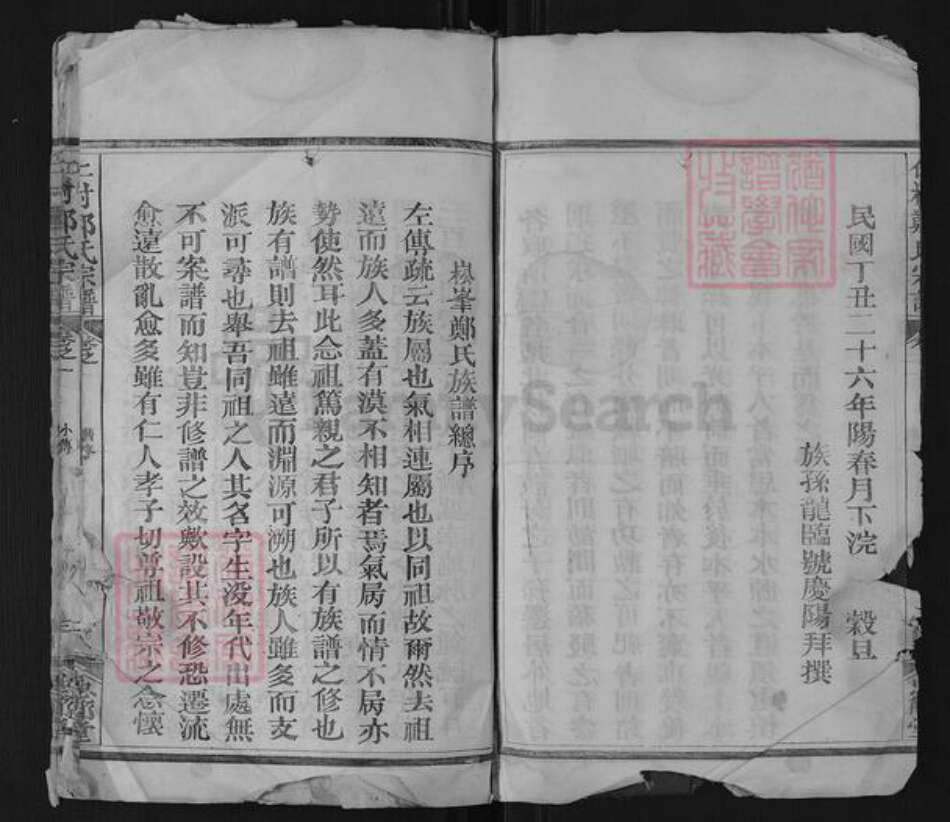 民國丁丑二十六年陽春月下浣 穀旦
族孫龍臨號慶陽拜撰
嵊峯鄭氏族譜總序
左傳疏云族屬也氣相連屬也以同祖故爾然去祖
遠而族人多蓋有漠不相知者焉氣屬而情不屬亦
勢使然耳此念祖篤親之君子所以有族譜之修也
族有譜則去祖雖遠而淵源可溯也族人雖多而支
派可尋也舉吾同祖之人其名字生没年代出處無
不可案譜而知豈非修譜之效歟設其不修恐遷流
愈遠散亂愈多雖有仁人孝子切尊祖敬宗之念懷
鄭氏宗譜
卷之一